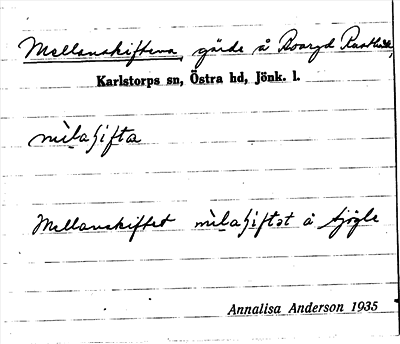 Mellanskiftena, gärde å Boaryd
Karlstorps sn, Östra hd, Jönk. l.
mìlaʃifta
Mellanskiftet mìlaʃiftət å
Annalisa Anderson 1935